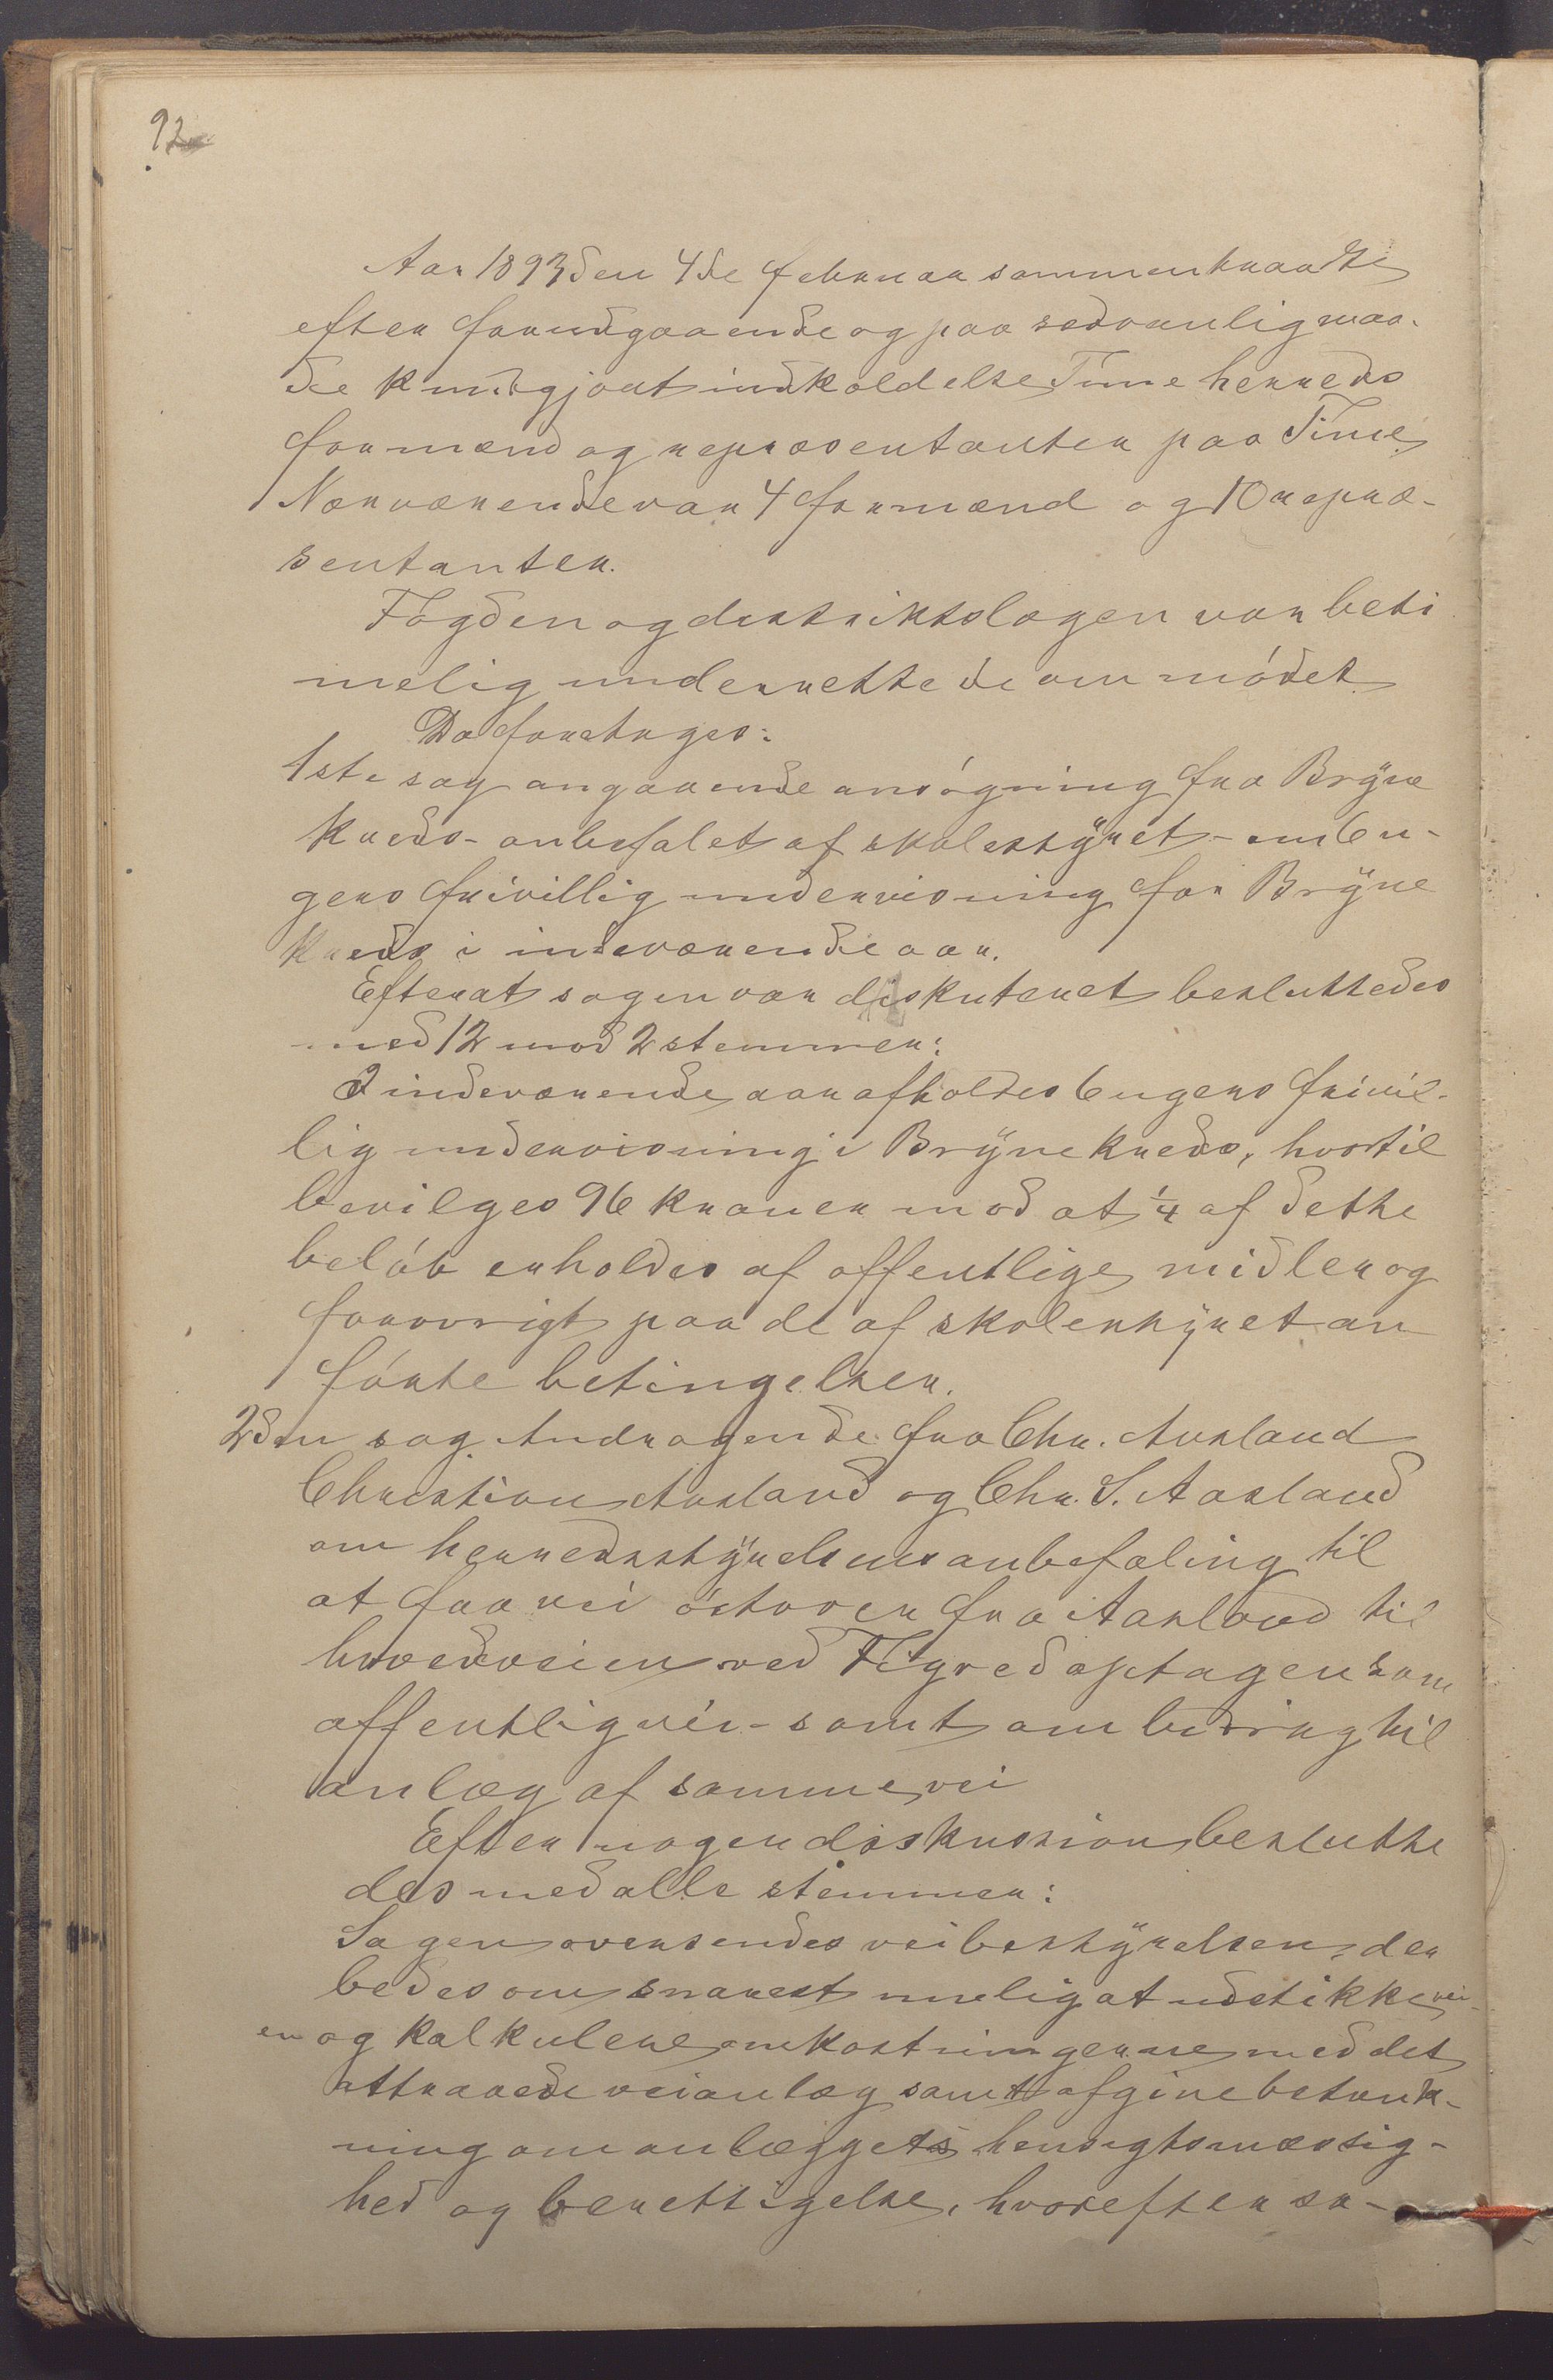 92
Aar 1893 den 4de februar sammentraadte
efter forudgaaende og paa sedvanlig maa-
de kundgjort indkaldelse Time herreds
formænd og repræsentanter paa Time
Nærværende var 4 formænd og 10 repræ-
sentanter.
Fogden og distriktslægen var beti
melig underrettede om mødet
Da foretoges:
1ste sag angaaende ansøgning fra Bryne
kreds - anbefalet af skolestyret - om 6 u-
gers frivillig undervisning for Bryne
kreds i indeværende aar.
Efterat sagen var diskuteret besluttedes
med 12 mod 2 stemmer:
I indeværende aar afholdes 6 ugers frivil-
lig undervisning i Bryne kreds, hvortil
bevilges 96 kroner mod at ¼ af dette
beløb erholdes af offentlige midler og
forøvrigt paa de af skolestyret an
førte betingelser.
2den sag. Andragende fra Chr. Aasland
Christian Aasland og Chr. S. Aasland
om herredsstyrelsens anbefaling til
at faa vei østover fra Aasland til
hovedveien ved Tegred optagen som
offentlig vei - samt om bidrag til
anlæg af samme vei
Efter nogen diskussion beslutte
des med alle stemmer:
Sagen oversendes veibestyrelsen, der
bedes om snarest mulig at udstikke vei-
en og kalkulere omkostningerne med det
attraaede veianlæg samt afgive betænk-
ning om anlæggets hensigtsmæssig-
hed og berettigelse, hvorefter sa-